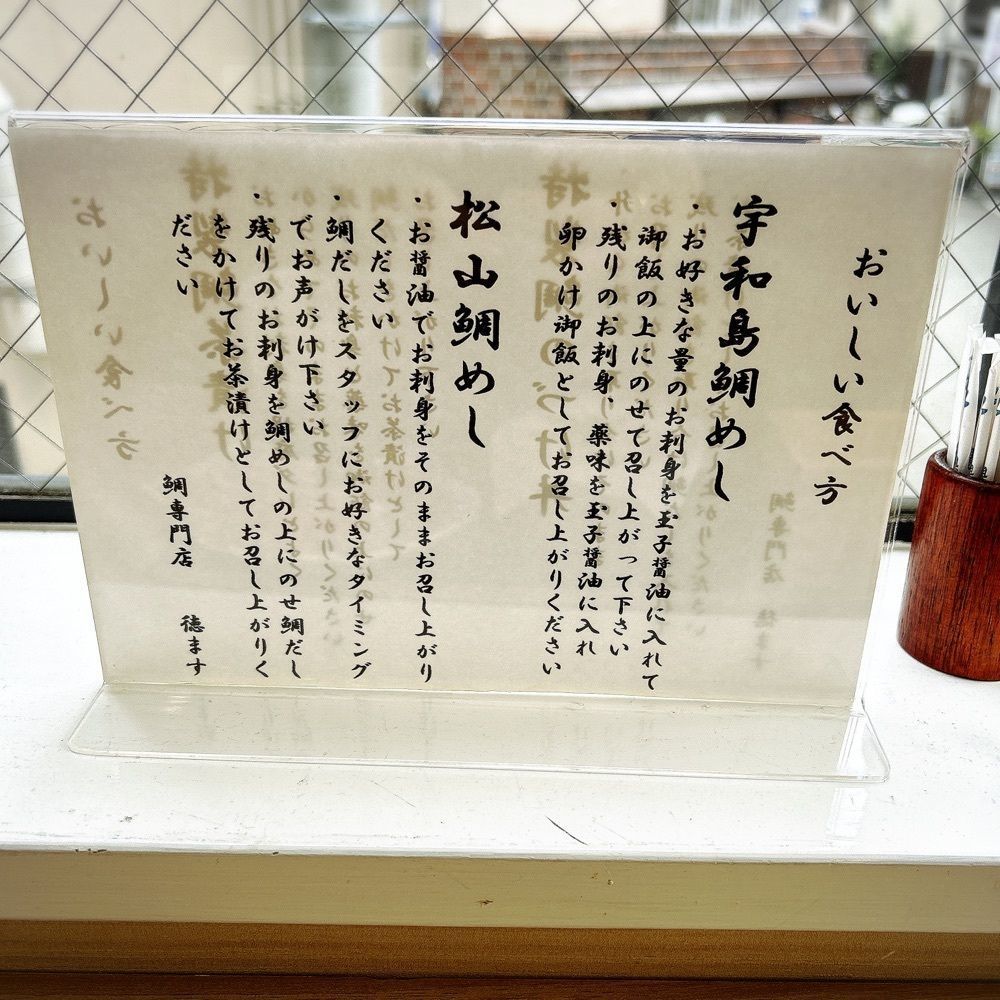 おいしい食べ方
宇和島鯛めし
・お好きな量のお刺身を玉子醤油に入れて
御飯の上にのせて召し上がって下さい
・残りのお刺身、薬味を玉子醤油に入れ
卵かけ御飯としてお召し上がりください
松山鯛めし
・お醤油でお刺身をそのままお召し上がり
ください
・鯛だしをスタッフにお好きなタイミング
でお声がけ下さい
・残りのお刺身を鯛めしの上にのせ鯛だし
をかけてお茶漬けとしてお召し上がりく
ださい
鯛専門店 徳ます